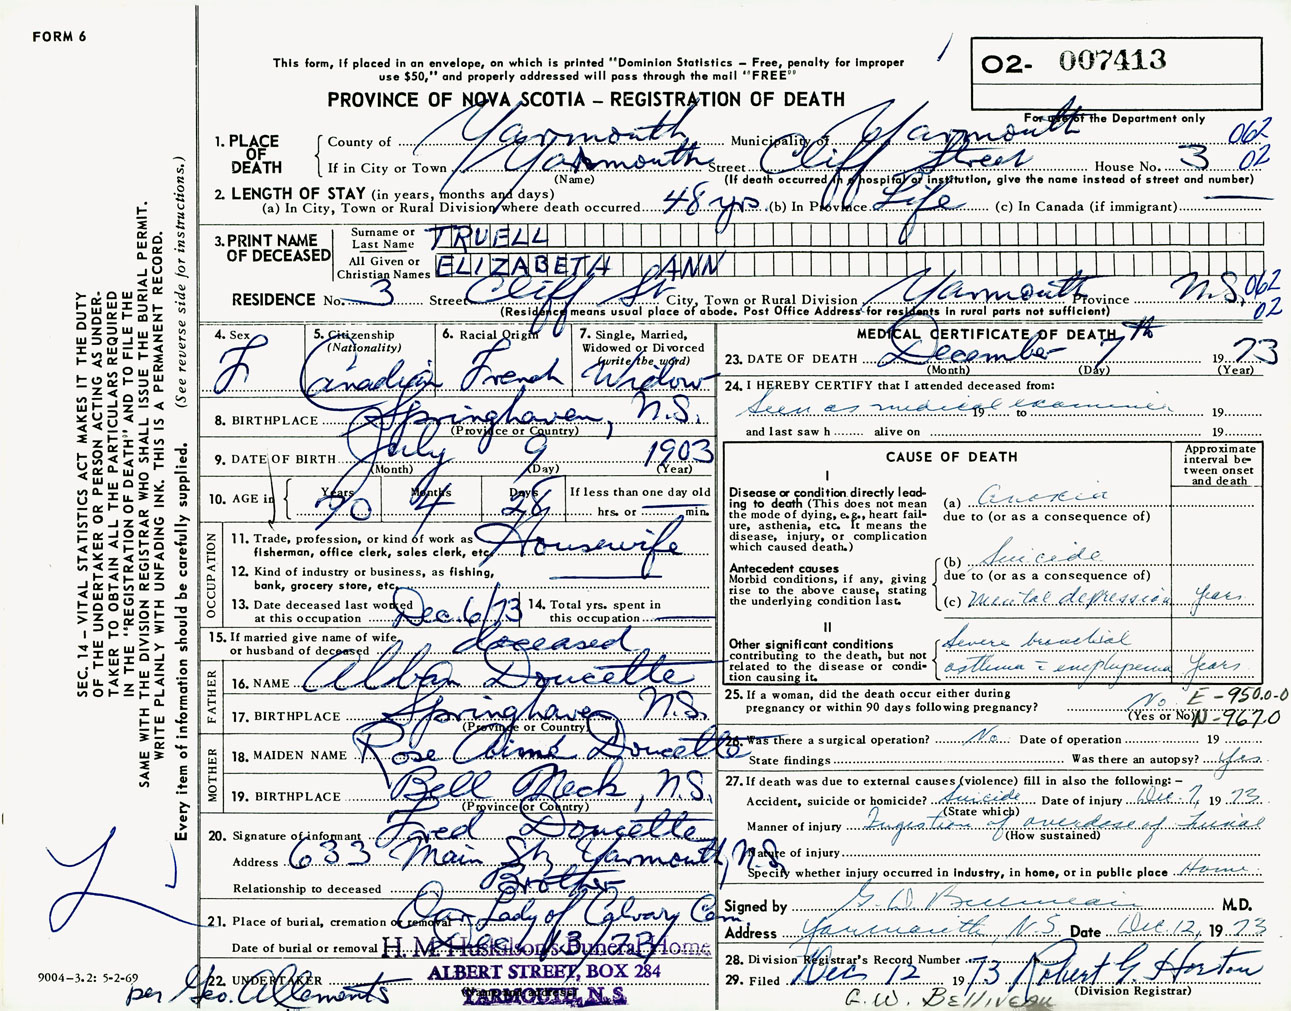 FORM 6
This form, if placed in an envelope, on which is printed "Dominion Statistics – Free, penalty for improper
use $50," and properly addressed will pass through the mail "FREE"
O2- 007413
PROVINCE OF NOVA SCOTIA – REGISTRATION OF DEATH
For use of the Department only
1. PLACE OF DEATH
County of Yarmouth Municipality of Yarmouth 062
If in City or Town Yarmouth Street Cliff Street House No. 3 02
(Name) (If death occurred in a hospital or institution, give the name instead of street and number)
2. LENGTH OF STAY (in years, months and days)
(a) In City, Town or Rural Division where death occurred 48 yrs. (b) In Province Life (c) In Canada (if immigrant)
3. PRINT NAME OF DECEASED
Surname or Last Name TRUELL
All Given or Christian Names ELIZABETH ANN
RESIDENCE No. 3 Street Cliff St City, Town or Rural Division Yarmouth Province N.S. 062
(Residence means usual place of abode. Post Office Address for residents in rural parts not sufficient) 02
4. Sex F
5. Citizenship (Nationality) Canadian
6. Racial Origin French
7. Single, Married, Widowed or Divorced (write the word) Widow
8. BIRTHPLACE Springhaven, N.S.
(Province or Country)
9. DATE OF BIRTH July 9 1903
(Month) (Day) (Year)
10. AGE in Years 70 Months 4 Days 28 If less than one day old
hrs. or min.
OCCUPATION
11. Trade, profession, or kind of work as fisherman, office clerk, sales clerk, etc. Housewife
12. Kind of industry or business, as fishing, bank, grocery store, etc.
13. Date deceased last worked at this occupation Dec 6/73 14. Total yrs. spent in this occupation
15. If married give name of wife, or husband of deceased deceased
FATHER
16. NAME Alban Doucette
17. BIRTHPLACE Springhaven N.S.
(Province or Country)
MOTHER
18. MAIDEN NAME Rose Aimé Doucette
19. BIRTHPLACE Bell Neck, N.S.
(Province or Country)
20. Signature of informant Fred Doucette
Address 633 Main St, Yarmouth, N.S.
Relationship to deceased Brother
21. Place of burial, cremation or removal Our Lady of Calvary Cem.
Date of burial or removal Dec 13/73
H. M. Huskilson's Funeral Home
ALBERT STREET, BOX 284
YARMOUTH, N. S.
22. UNDERTAKER
per Geo. A Clements
MEDICAL CERTIFICATE OF DEATH
23. DATE OF DEATH December 7th 1973
(Month) (Day) (Year)
24. I HEREBY CERTIFY that I attended deceased from:
Seen as medical examiner 19 to 19
and last saw h alive on 19
CAUSE OF DEATH
Approximate interval between onset and death
I
Disease or condition directly leading to death (This does not mean the mode of dying, e.g., heart failure, asthenia, etc. It means the disease, injury, or complication which caused death.)
(a) Anoxia
due to (or as a consequence of)
Antecedent causes
Morbid conditions, if any, giving rise to the above cause, stating the underlying condition last.
(b) Suicide
due to (or as a consequence of)
(c) Mental depression years
II
Other significant conditions
contributing to the death, but not related to the disease or condition causing it.
Severe bronchial
asthma = emphysema years
25. If a woman, did the death occur either during pregnancy or within 90 days following pregnancy? No
(Yes or No)
E-950.0-0
N-967.0
26. Was there a surgical operation? No Date of operation 19
State findings Was there an autopsy? Yes
27. If death was due to external causes (violence) fill in also the following: –
Accident, suicide or homicide? Suicide Date of injury Dec 7, 1973
(State which)
Manner of injury Ingestion of overdose of
(How sustained)
Nature of injury
Specify whether injury occurred in industry, in home, or in public place Home
Signed by G. W. Belliveau M.D.
Address Yarmouth, N.S. Date Dec 12, 1973
28. Division Registrar's Record Number
29. Filed Dec 12 1973 Robert G. Horton
(Division Registrar)
G.W. BELLIVEAU
SEC. 14 – VITAL STATISTICS ACT MAKES IT THE DUTY
OF THE UNDERTAKER OR PERSON ACTING AS UNDER-
TAKER TO OBTAIN ALL THE PARTICULARS REQUIRED
IN THE "REGISTRATION OF DEATH" AND TO FILE THE
SAME WITH THE DIVISION REGISTRAR WHO SHALL ISSUE THE BURIAL PERMIT.
WRITE PLAINLY WITH UNFADING INK. THIS IS A PERMANENT RECORD.
Every item of information should be carefully supplied. (See reverse side for instructions.)
9004–3.2: 5-2-69